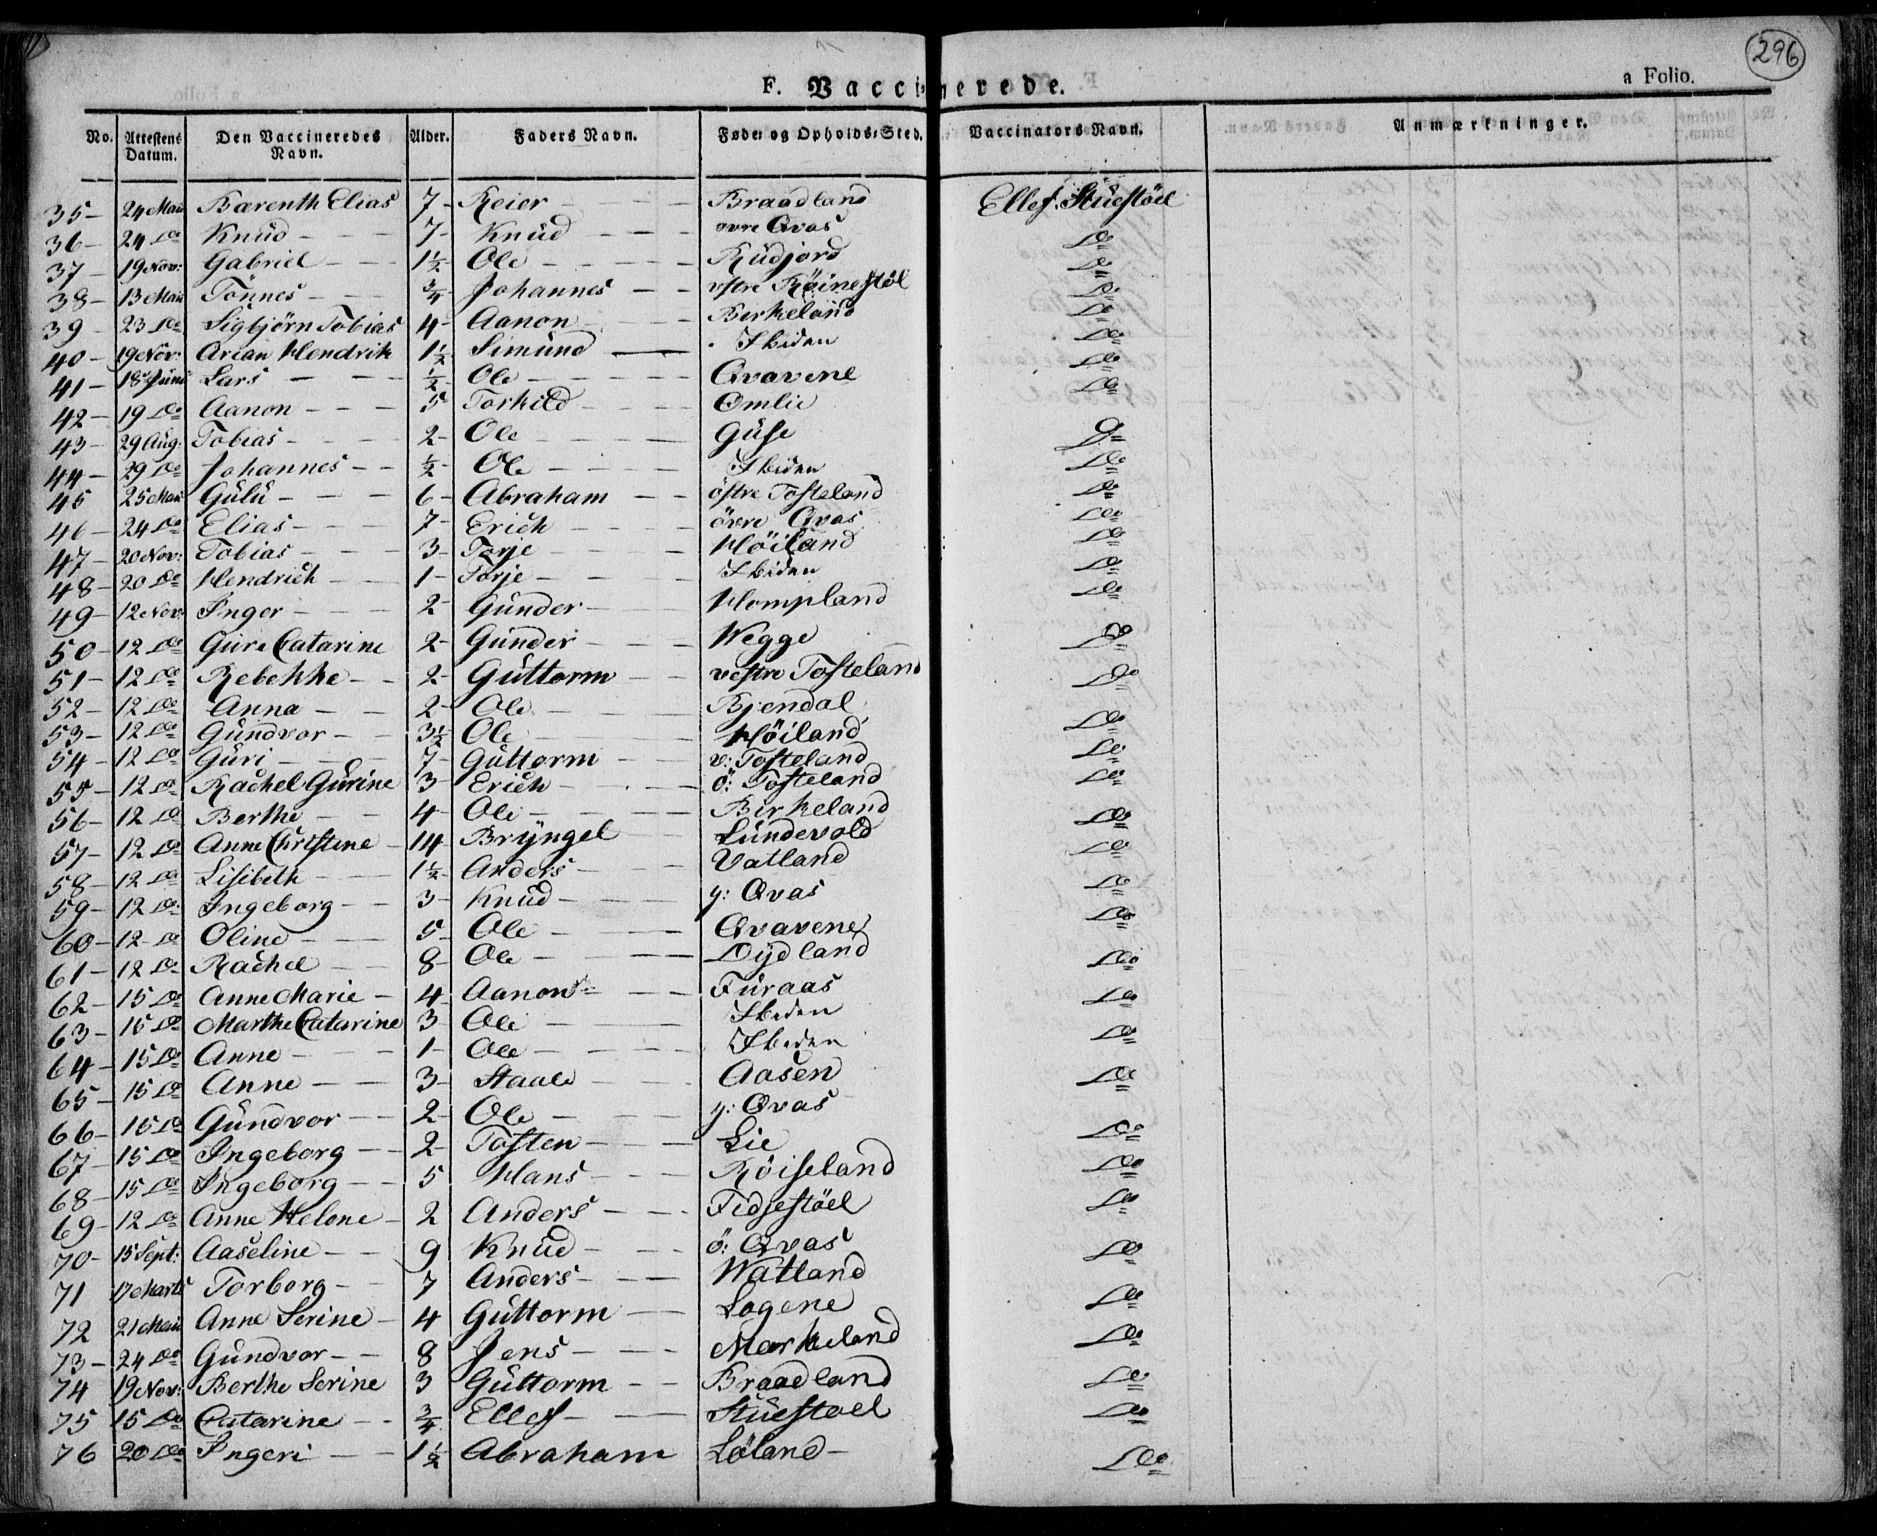 296
F. Vaccinerede.
a Folio.
No. Attestens Datum. Den Vaccineredes Navn. Alder. Faders Navn. Føde og Opholds-Sted. Vaccinators Navn. Anmærkninger.
35 - 24 Maii Barenth Elias 7 - Reier - - - Braadland Ellef Stuestöel
36 - 24 Do Knud - - - 7 - Knud - - - øvre Qvas Do
37 - 19 Nov: Gabriel - - - 1½ Ole - - - Rudjord Do
38 - 13 Maii Tönnes - - - ¾ Johannes - - vstre Röinestöl Do
39 - 23 Do Sigbjörn Tobias 4 - Aanon - - - Birkeland Do
40 - 19 Nov: Arian Hendrik 1½ Simund - Ibiden Do
41 - 18 Juni Lars - - - ½ Ole - - - Qvavene Do
42 - 19 Do Aanon - - - 5 Torkild - - - Omlie Do
43 - 29 Aug: Tobias - - - 2 - Ole - - - Guse Do
44 - 29 Do Johannes - - ½ - Ole - - - Ibiden Do
45 25 Maii Gulu - - - 6 - Abraham - - östre Tosteland Do
46 - 24 Do Elias - - - 7 - Erich - - - övre Qvas Do
47 - 20 Nov: Tobias - - - 3 - Torje - - - Höiland Do
48 - 20 Do Hendrich - - 1 - Torje - - - Ibiden Do
49 - 12 Nov: Inger - - - 2 - Gunder - Hompland Do
50 - 12 Do Gure Catarine 2 - Gunder - - - Wegge Do
51 - 12 Do Rebekke - - 2 - Guttorm - - vestre Tosteland Do
52 - 12 Do Anna - - 2 - Ole - - - Bjendal Do
53 - 12 Do Gundvor - - 3½ Ole - - - Höiland Do
54 - 12 Do Guri - - - 7 - Guttorm - - v: Tosteland Do
55 - 12 Do Rachel Gurine 3 Erich - - - ö: Tosteland Do
56 - 12 Do Berthe - - 4 - Ole - - - Birkeland Do
57 - 12 Do Anne Christine - 14 Bryngel Lundevold Do
58 - 12 Do Lisebeth - - 1½ Anders - - - Vatland Do
59 - 12 Do Ingeborg - - 3 - Knud - - - y: Qvas Do
60 - 12 Do Oline - - - 5 - Ole - - - Qvavene Do
61 - 12 Do Rachel - - 8 - Ole - - - Dydland Do
62 - 15 Do Anne Marie - 4 - Aanon - - - Furaas Do
63 - 15 Do Marthe Catarine 3 - Ole - - - Ibiden Do
64 - 15 Do Anne - - - 1 - Ole - - - Ibiden Do
65 - 15 Do Anne - - - 3 - Staale - - - Aasen Do
66 - 15 Do Gundvor - - 2 - Ole - - - y: Qvas Do
67 - 15 Do Ingeborg - - 2 - Tosten - - - Lie Do
68 - 15 Do Ingeborg - - 5 Hans - - - Röiseland Do
69 - 12 Do Anne Helene - 2 Anders - - - Fidjestöel Do
70 - 15 Sept: Aaseline - - 9 Knud - - - ö: Qvas Do
71 17 Marts Torborg - - 7 Anders - - - Watland Do
72 21 Maii Anne Serine - 4 Guttorm - - Logene Do
73 - 24 Do Gundvor - - 8 Jens - - - Markeland Do
74 19 Nov: Berthe Serine 3 Guttorm - - Braadland Do
75 15 Do Catarine - - ¾ Ellef - - - Stuestoel Do
76 20 Do Ingeri - - 1½ Abraham Löland - Do